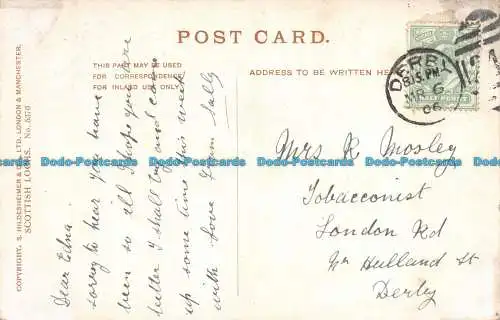 POST CARD.
THIS PART MAY BE USED
FOR CORRESPONDENCE
FOR INLAND USE ONLY
ADDRESS TO BE WRITTEN HERE
COPYRIGHT, S. HILDESHEIMER & CO. LTD. LONDON & MANCHESTER.
SCOTTISH LOCHS. No.
DERBY
8.15 PM
MR 6
06
Dear Edna
sorry to hear you have
been so ill I hope you are
better I shall try and come
up some time this week
with love from Sally
Mrs R Mosley
Tobacconist
London Rd
Nr Hulland St
Derby
Dodo-Antiques Dodo-Antiques Dodo-Antiques Dodo-Antiques Dodo-Antiques